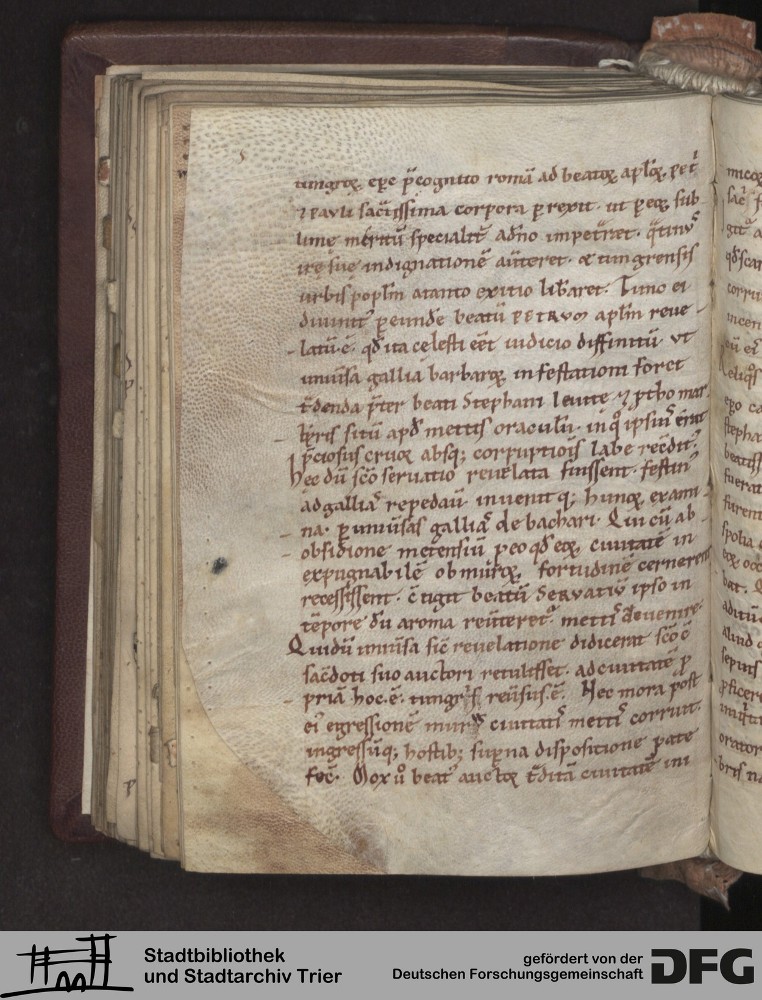 tungroꝝ, epc p̄cognito romā ad beatoꝝ apl̄oꝝ, petˈ
⁊ pauli sac̄tissima corpora prexit. ut p eoꝝ sub-
lime meritū specialit̄ adn̄o impetraret. q̄tinꝰ
irę suę indignationē auferet. & tungrensis
urbis popl̄m atanto exitio lib̄aret. Tunc ei
diuinitˈ peunde beatū PETRVM apl̄m reue-
latū.ē. qđ ita celesti eēt iudicio diffinitū ut
uniūsa gallia barbaroꝝ infestationi foret
t̄denda p̄ter beati Stephani leuite. ⁊ ptho mar-
tẏris sitū apđ mettis oraculū. in q̊ ipsiuꝰ
p̄ciosus cruor absq; corruptiois labe
Hec dū sc̄o seruatio reuelata fuissent. festinˈ
ad galliaˢ repedauˈ inuenit q; hunoꝝ exami-
na. p uniūsas galliaˢ de bachari. Qui cū ab
obsidione metensiū p eo qđ eoꝝ, ciuitatē in
expugnabilē ob muroꝝ, fortudinē cernerent
recessissent. c̄tigit beatū Seruatiū ipso in
tēpore dū aroma reūteretˈ. mettiˢ deuenire.
Qui dū uniūsa sic̄ reuelatione didicerat sc̄o ē
sac̄doti suo auctori retulisset. ad ciuitatē p
priā hoc.ē. reūsus.ē. Nec mora post
eiˈ egressionē ciuitatiˢ mettiˢ corruit.
ingressūq; hostib; sup̄na dispositione pate
fec̄. Mox ů beatˈ auctoꝝ t̄ditā ciuitatē ini
Stadtbibliothek
und Stadtarchiv Trier
gefördert von der
Deutschen Forschungsgemeinschaft
DFG